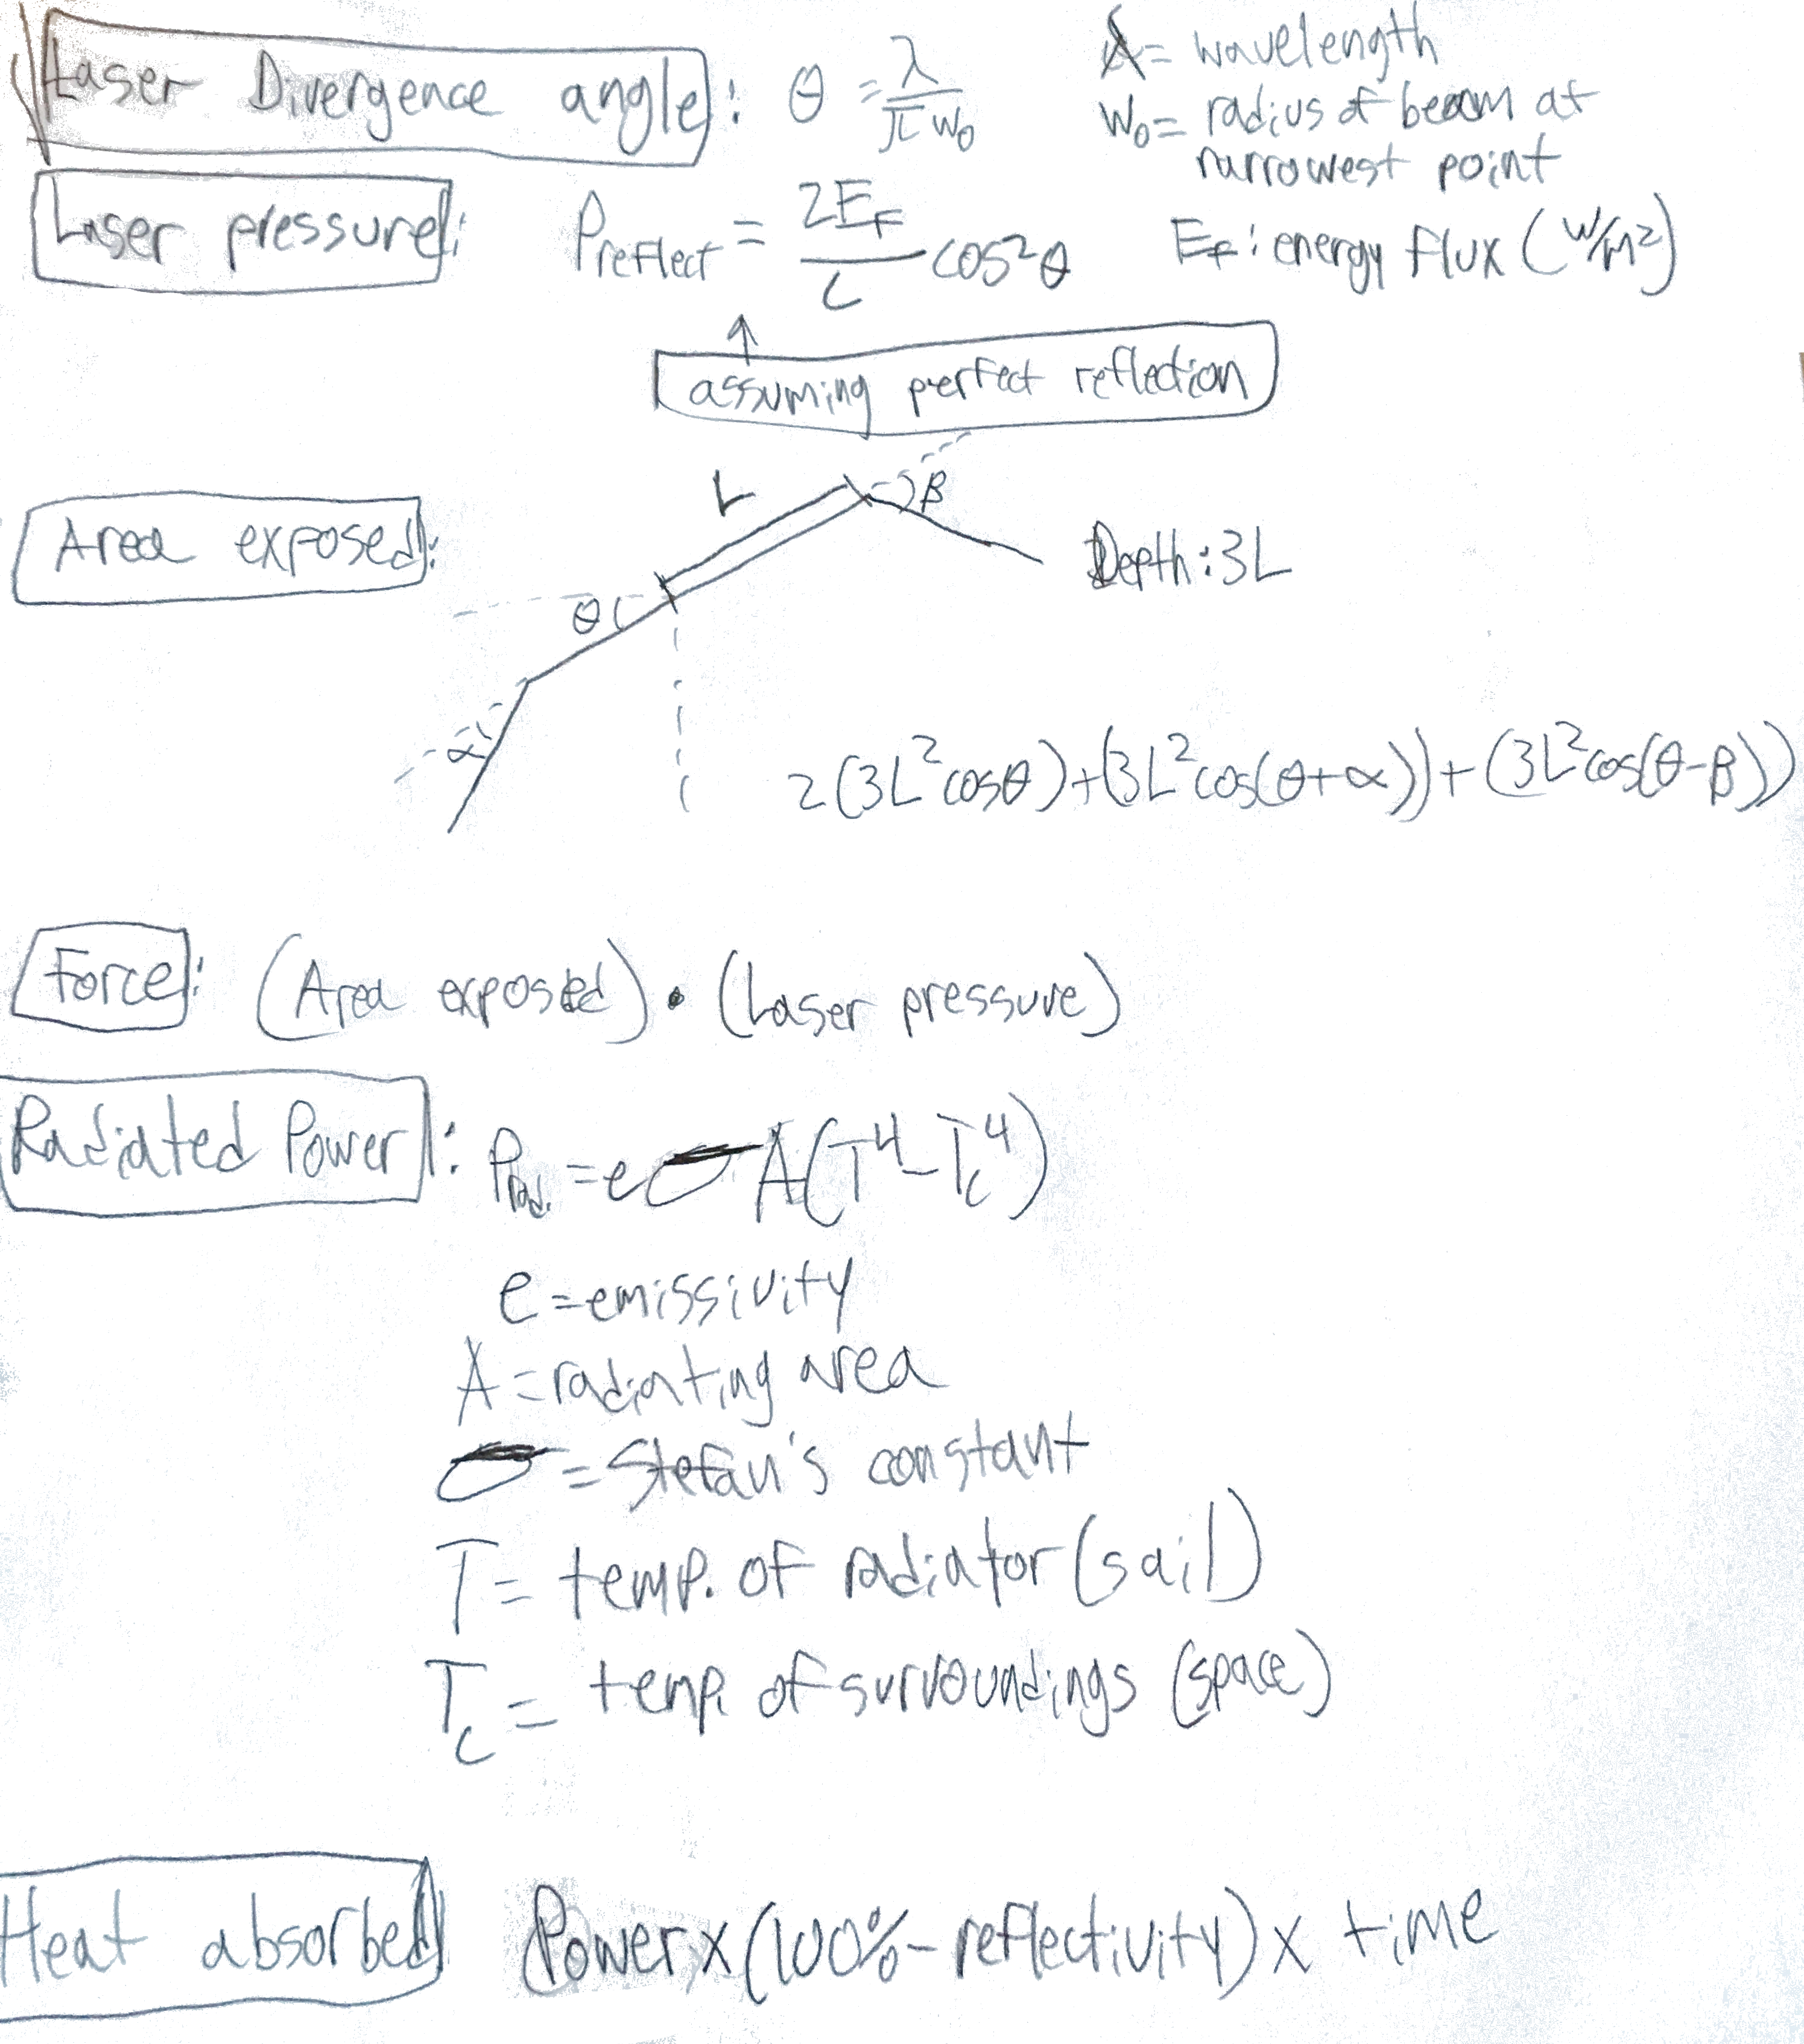 Laser Divergence angle: θ = λ/(π w₀)
λ = wavelength
w₀ = radius of beam at
narrowest point
Laser pressure: P_reflect = (2E_F/c) cos²θ
E_F: energy flux (W/m²)
↑
assuming perfect reflection
Area exposed:
L
β
Depth: 3L
θ
α
2(3L²cosθ)+(3L²cos(θ+α))+(3L²cos(θ-β))
Force: (Area exposed) • (Laser pressure)
Radiated Power: P_rad. = eσA(T⁴-T_c⁴)
e = emissivity
A = radiating area
σ = Stefan's constant
T = temp. of radiator (sail)
T_c = temp. of surroundings (space)
Heat absorbed Power x (100% - reflectivity) x time